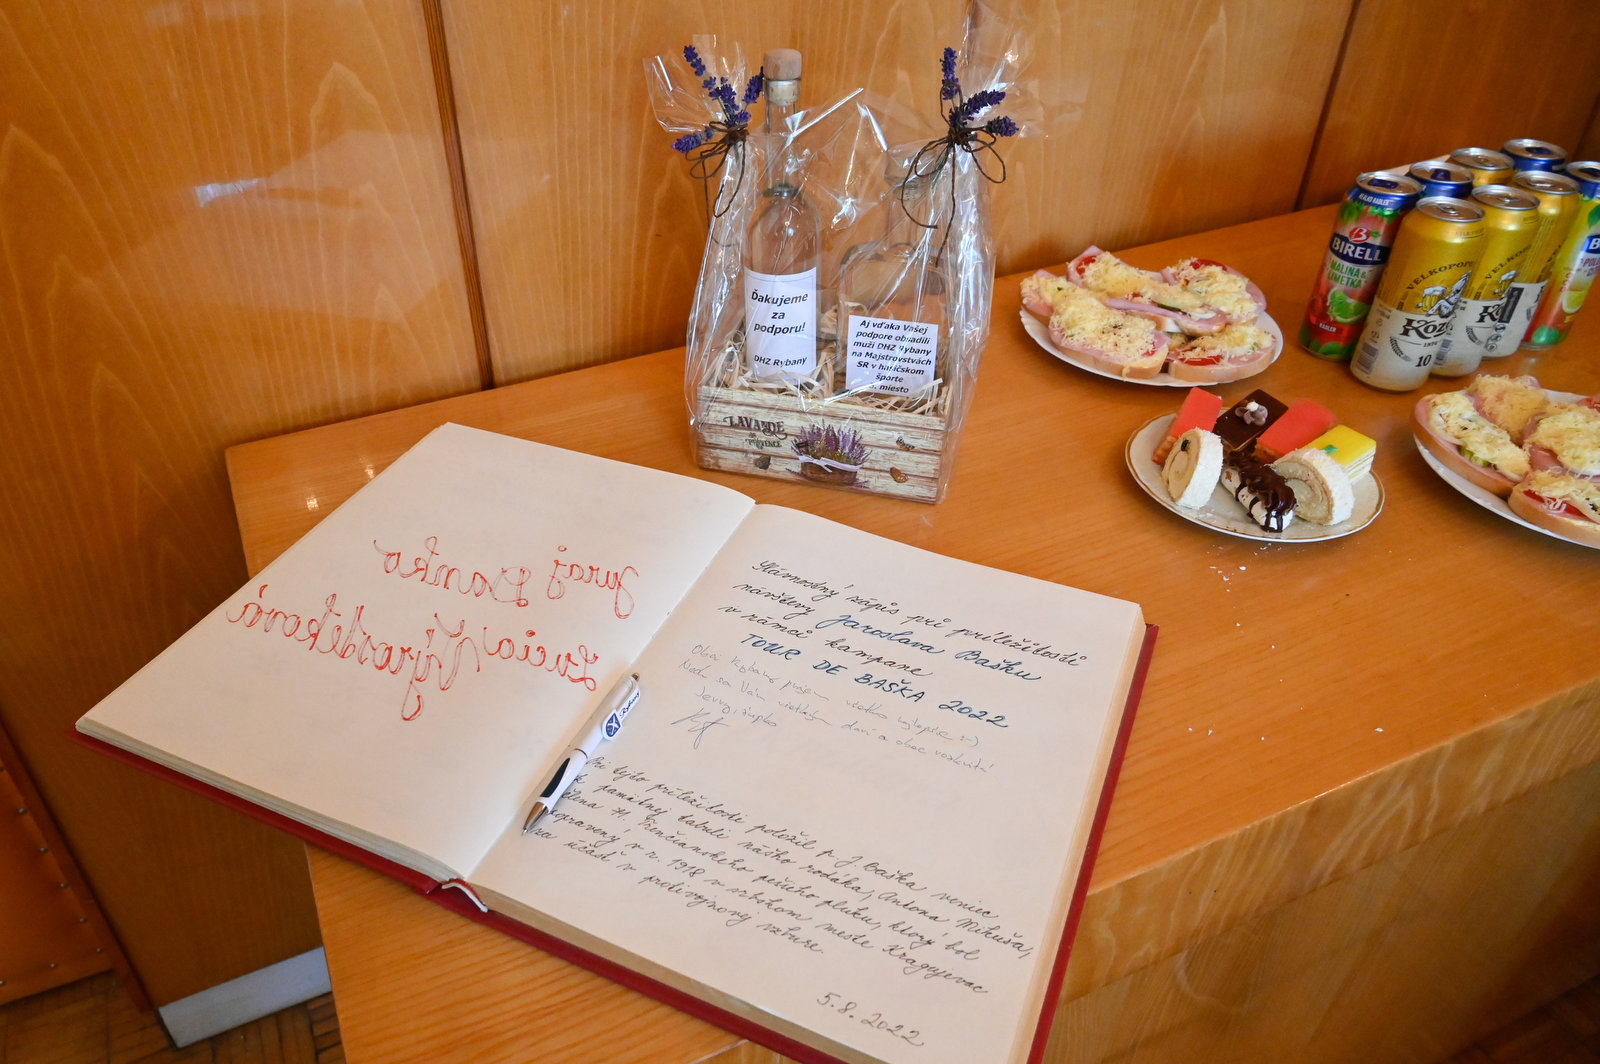 Ďakujeme
za
podporu!
DHZ Rybany
Aj vďaka Vašej
podpore obsadili
muži DHZ Rybany
na Majstrovstvách
SR v hasičskom
športe
miesto
LAVANDE
DE PROVENCE
BIRELL
MALINA &
LIMETKA
RADLER
VELKOPOPO
KOZ
10
VELKOPO
Juraj Danko
Lucia Výrosteková
Rybany
Slávnostný zápis pri príležitosti
návštevy Jaroslava Bašku
v rámci kampane
TOUR DE BAŠKA 2022
Obci Rybany prajem všetko najlepšie :-)
Nech sa Vám všetkým darí a obec rozkvitá
Pri tejto príležitosti položil p. J. Baška veniec
k pamätnej tabuli nášho rodáka, Antona Mikuša,
člena 71. Trenčianskeho pešieho pluku, ktorý bol
popravený v r. 1918 v srbskom meste Kragujevac
za účasť v protivojnovej vzbure.
5.8.2022